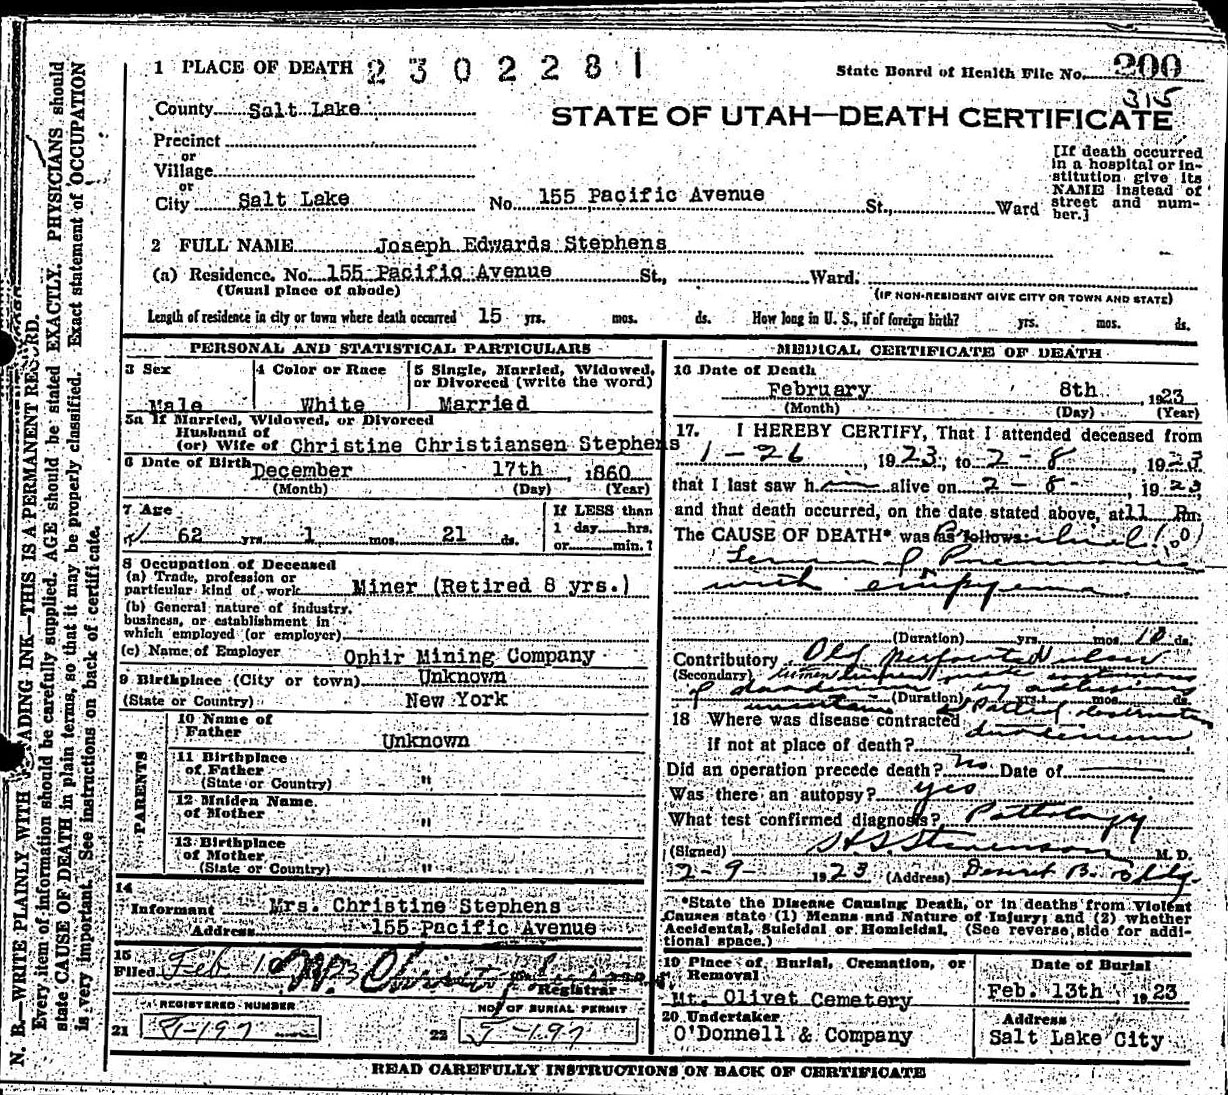 1 PLACE OF DEATH 2302281
State Board of Health File No. 200
315
County Salt Lake
STATE OF UTAH—DEATH CERTIFICATE
Precinct
or
Village
or
City Salt Lake No. 155 Pacific Avenue St., Ward
[If death occurred
in a hospital or in-
stitution give its
NAME instead of
street and num-
ber.]
2 FULL NAME Joseph Edwards Stephens
(a) Residence. No. 155 Pacific Avenue St., Ward.
(Usual place of abode) (IF NON-RESIDENT GIVE CITY OR TOWN AND STATE)
Length of residence in city or town where death occurred 15 yrs. mos. ds. How long in U. S., if of foreign birth? yrs. mos. ds.
PERSONAL AND STATISTICAL PARTICULARS
3 Sex 4 Color or Race 5 Single, Married, Widowed,
or Divorced (write the word)
Male White Married
5a If Married, Widowed, or Divorced
Husband of
(or) Wife of Christine Christiansen Stephens
6 Date of Birth December 17th, 1860
(Month) (Day) (Year)
7 Age If LESS than
62 yrs. 1 mos. 21 ds. 1 day hrs.
or min.?
8 Occupation of Deceased
(a) Trade, profession or
particular kind of work Miner (Retired 8 yrs.)
(b) General nature of industry,
business, or establishment in
which employed (or employer)
(c) Name of Employer Ophir Mining Company
9 Birthplace (City or town) Unknown
(State or Country) New York
PARENTS
10 Name of
Father Unknown
11 Birthplace
of Father
(State or Country) "
12 Maiden Name
of Mother "
13 Birthplace
of Mother
(State or Country) "
14
Informant Mrs. Christine Stephens
Address 155 Pacific Avenue
15
Filed Feb 10
Registrar
REGISTERED NUMBER NO. OF BURIAL PERMIT
21 22
MEDICAL CERTIFICATE OF DEATH
16 Date of Death
February 8th, 1923
(Month) (Day) (Year)
17. I HEREBY CERTIFY, That I attended deceased from
1-26, 1923, to 2-8, 1923
that I last saw h alive on 2-8-, 1923,
and that death occurred, on the date stated above, at 11 P m.
The CAUSE OF DEATH* was as follows:
Pneumonia
with empyema
(Duration) yrs. mos. 10 ds.
Contributory Old perforated ulcer
(Secondary)
of (Duration) yrs. mos.
18 Where was disease contracted
If not at place of death?
Did an operation precede death? no Date of
Was there an autopsy? yes
What test confirmed diagnosis? Pathology
(Signed) Stevenson M. D.
2-9- 1923 (Address)
*State the Disease Causing Death, or in deaths from Violent
Causes state (1) Means and Nature of Injury; and (2) whether
Accidental, Suicidal or Homicidal. (See reverse side for addi-
tional space.)
19 Place of Burial, Cremation, or Date of Burial
Removal
Mt. Olivet Cemetery Feb. 13th 1923
20 Undertaker Address
O'Donnell & Company Salt Lake City
READ CAREFULLY INSTRUCTIONS ON BACK OF CERTIFICATE
N. B.—WRITE PLAINLY WITH UNFADING INK—THIS IS A PERMANENT RECORD.
Every item of information should be carefully supplied. AGE should be stated EXACTLY. PHYSICIANS should
state CAUSE OF DEATH in plain terms, so that it may be properly classified. Exact statement of OCCUPATION
is very important. See instructions on back of certificate.